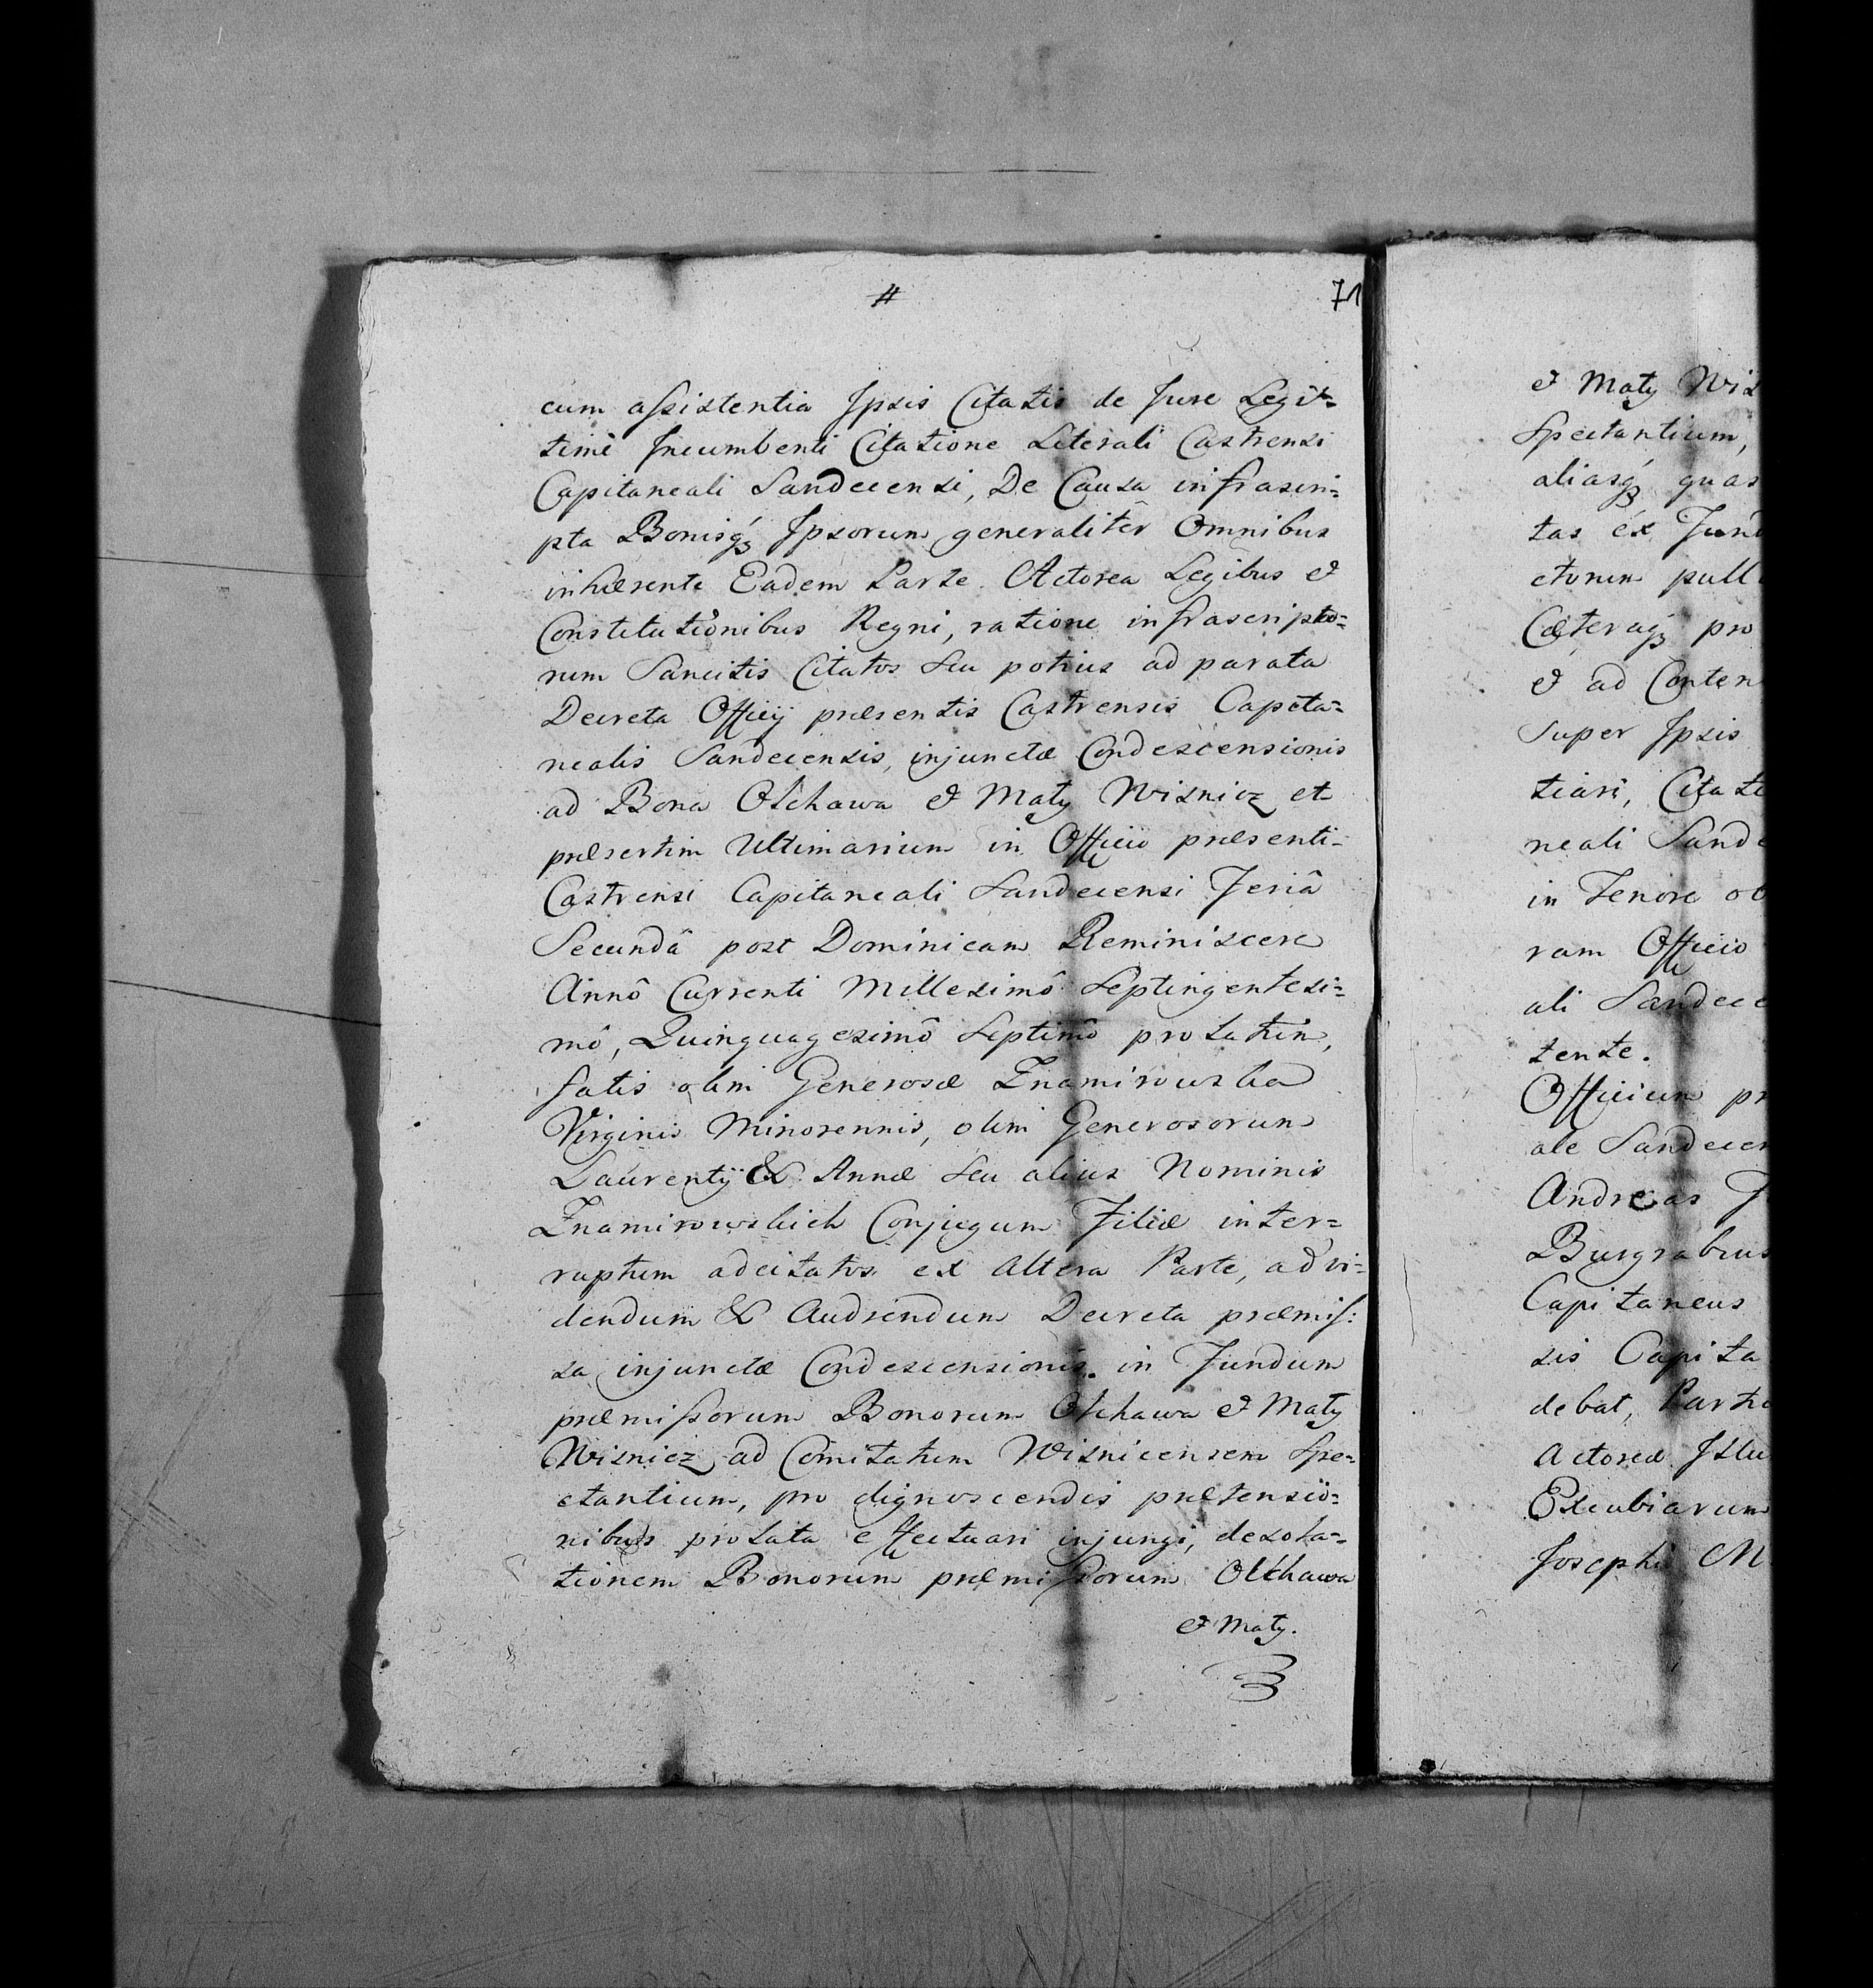 #
71
cum assistentia Ipsis Citatis de Jure Legi=
timè Incumbenti Citatione Literali Castrensi
Capitaneali Sandecensi, De Causa infrascri=
pta Bonisq́ꝫ Ipsorum generalitèr Omnibus
inhærente Eadem Parte Actorea Legibus et
Constitutionibus Regni, ratione infrascripto=
rum Sancitis Citatos seu potius ad parata
Decreta Officij præsentis Castrensis Capita=
nealis Sandecensis, injunctæ Condescensionis
ad Bona Olchawa et Maty Wisnicz et
præsertim Ultimarium in Officio præsenti
Castrensi Capitaneali Sandecensi Feriâ
Secundâ post Dominicam Reminiscere
Annô Currenti Millesimô Septingentesi=
mô, Quinquagesimô Septimô prolatum,
fatis olim Generosæ Znamirowska
Virginis Minorennis, olim Generosorum
Laurentÿ & Annæ seu alius Nominis
Znamirowskich Conjugum Filiæ inter=
ruptum adcitatos ex Altera Parte, ad vi=
dendum & Audiendum Decreta præmis:
sa injunctæ Condescensionis in Fundum
præmissorum Bonorum Olchawa et Maty
Wisnicz ad Comitatum Wisnicensem Spe=
ctantium, pro dignoscendis prætensio=
nibus prolata effectuari injungi, desola=
tionem Bonorum præmissorum Olchawa
et Maty.
et Maty Wis
Spectantium,
aliasq́ꝫ quas
tas ex Fund
ctorum pull
Cæteraq́ꝫ pro
et ad Conten
Super Ipsis
tiari, Citati
neali Sande
in Tenore ob
ram Officio
ali Sandece
tente.
Officium pr
ale Sandecen
Andreas
Burgrabius
Capitaneus
sis Capita
debat, Parti
Actoreæ Istu
Excubiarum
Josephi M